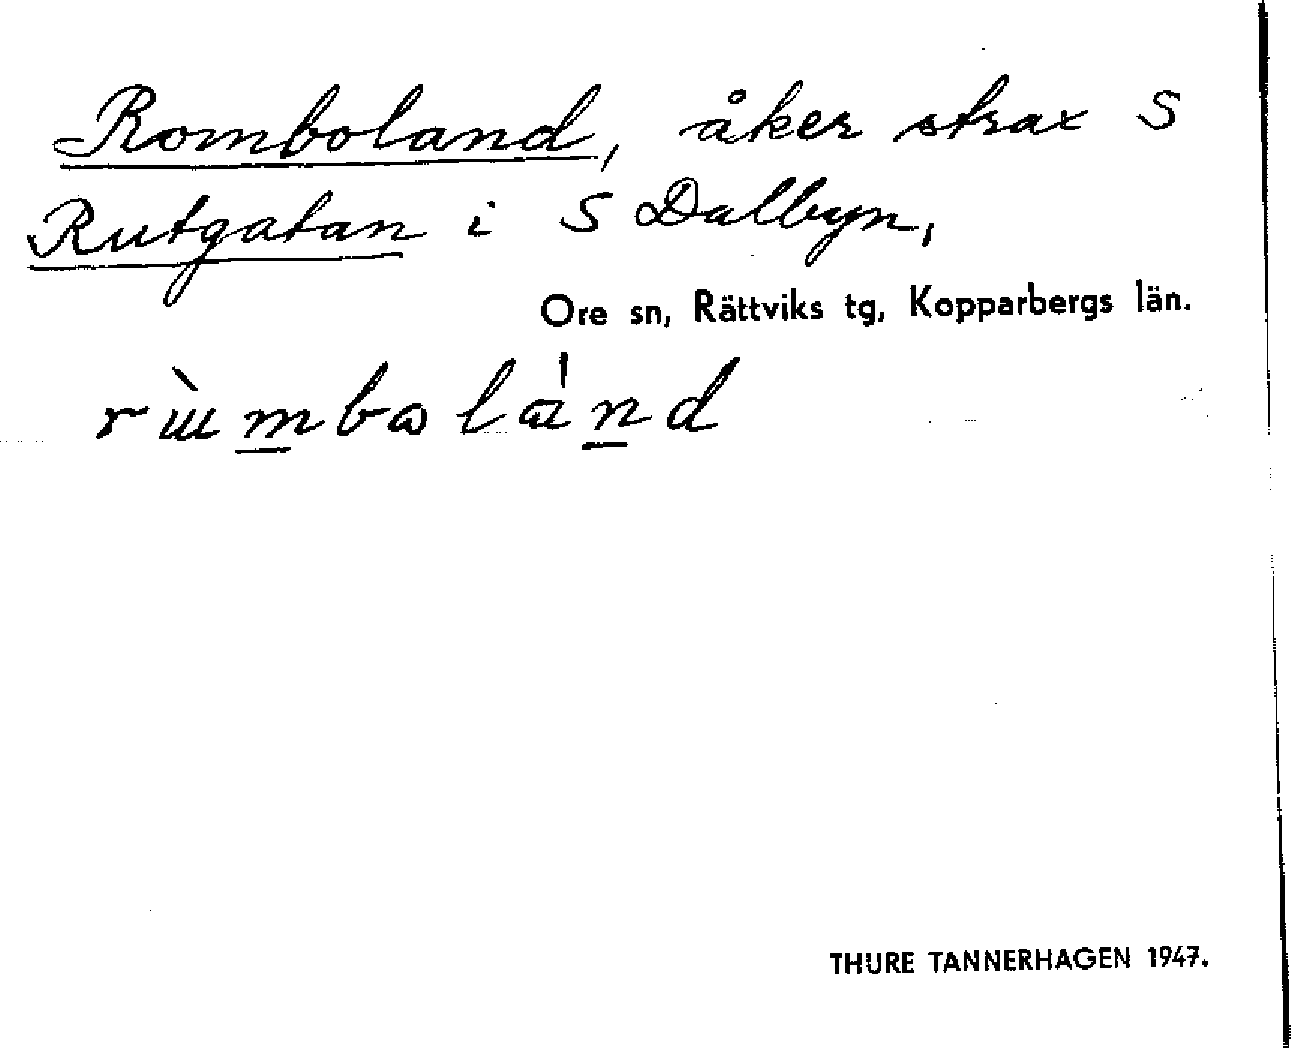 Romboland, åker strax S
Rutgatan i S Dalbyn,
Ore sn, Rättviks tg, Kopparbergs län.
THURE TANNERHAGEN 1947.